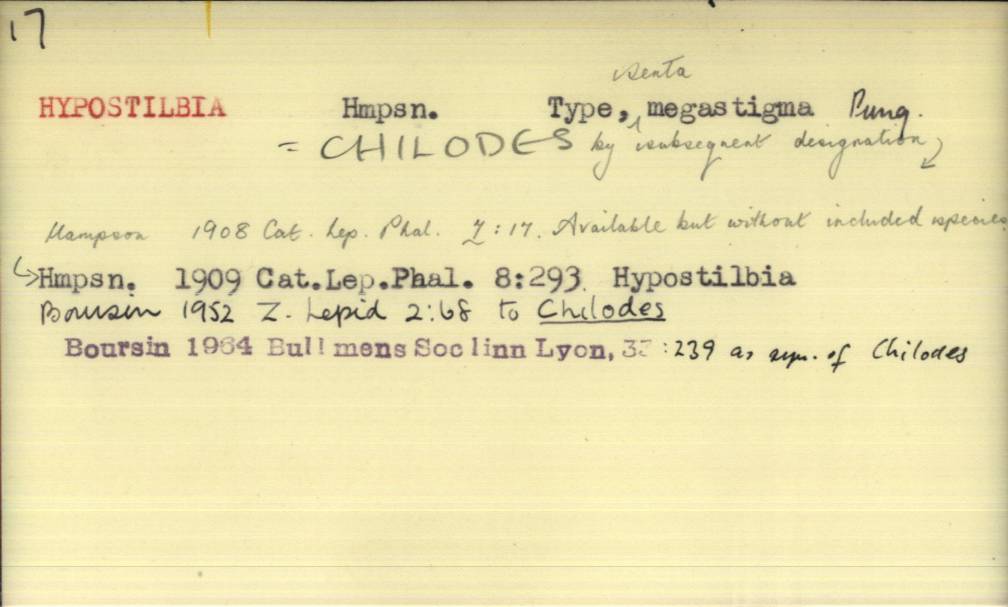 17
Senta
HYPOSTILBIA Hmpsn. Type, megastigma Pung.
= CHILODES by subsequent designation
Hampson 1908 Cat. Lep. Phal. 7:17. Available but without included species.
Hmpsn. 1909 Cat.Lep.Phal. 8:293. Hypostilbia
Boursin 1952 Z. Lepid 2:68 to Chilodes
Boursin 1964 Bull mens Soc linn Lyon, 33:239 as syn. of Chilodes